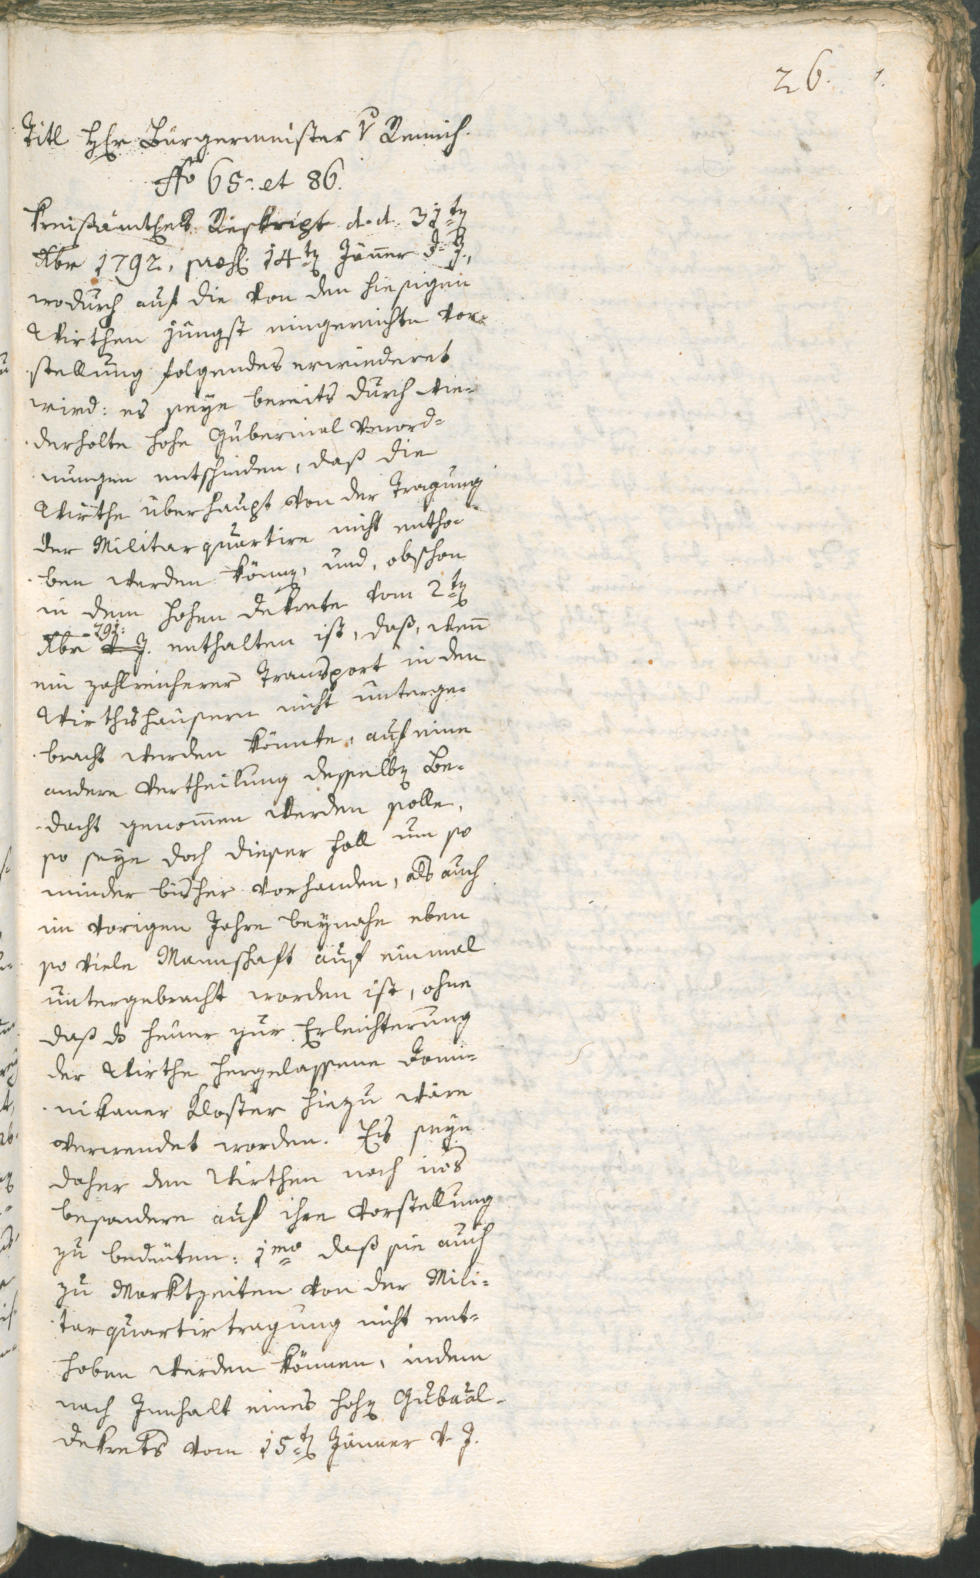 26.
Titl Hr Bürgermeister v Remich.
No 65. et 86.
Kreisämtches Reskript d. d. 31ten
Xbr 1792, praes. 14ten Jänner d. J.,
wodurch auf die von den hiesigen
Wirthen jüngst eingereichte Vor=
stellung folgendes erwiederet
wird: es seye bereits durch wie=
derholte hohe Gubernial Verord=
nungen entschieden, daß die
Wirthe überhaupt von der Tragung
der Militarquartire nicht entho=
ben werden könen, und, obschon
in dem hohen Dekrete vom 2ten
Xbr 791. enthalten ist, daß, wenn
ein zahlreicherer Transport in den
Wirthshäusern nicht unterge=
bracht werden könnte, auf eine
andere Vertheilung desselben Be=
dacht genommen werden solle,
so seye doch dieser Fall um so
minder bisher vorhanden, als auch
im vorigen Jahre beynahe eben
so viele Mannschaft auf einmal
untergebracht worden ist, ohne
daß ds heuer zur Erleichterung
der Wirthe hergelassene Domi=
nikaner Kloster hiezu wäre
verwendet worden. Es seye
daher den Wirthen noch ins
besondere auf ihre Vorstellung
zu bedeuten: 1mo daß sie auch
zu Marktzeiten von der Mili=
tarquartirtragung nicht ent=
hoben werden können, indem
nach Innhalt eines hohen Gubaal=
dekrets vom 15ten Jänner v. J.